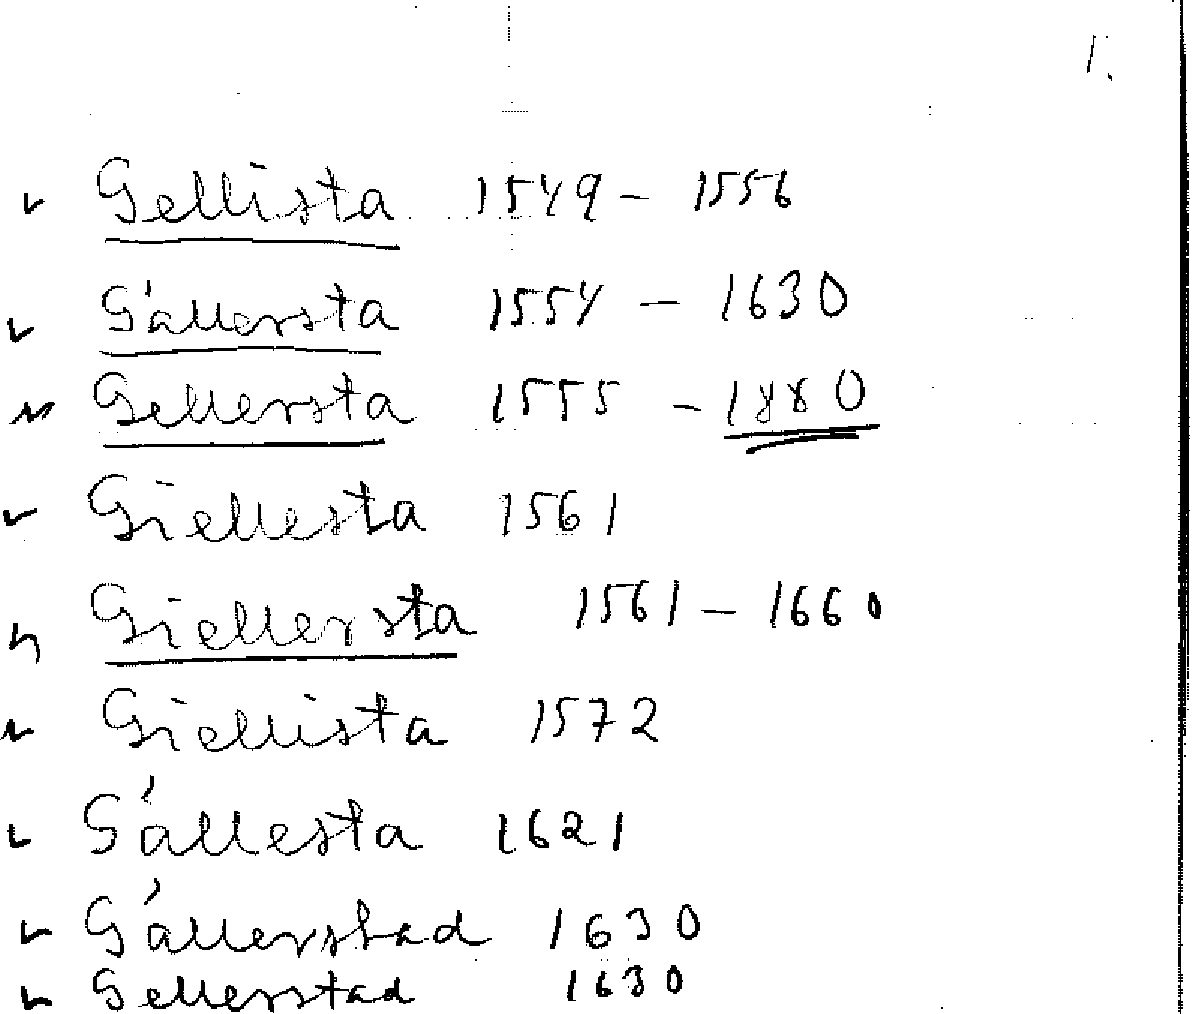 1.
Gellista 1549 – 1556
Gállersta 1554 – 1630
Gellersta 1555 – 1880
Giellesta 1561
Giellersta 1561 – 1660
Giellista 1572
Gállesta 1621
Gállerstad 1630
Gellerstad 1630